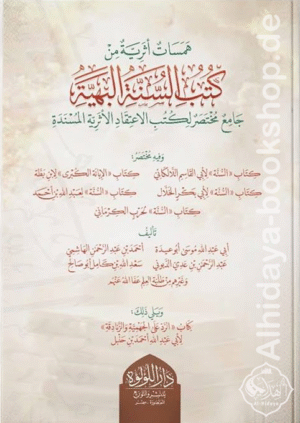 هَمَسَاتٌ أَثَرِيَّةٌ مِنْ
كُتُبِ السُّنَّةِ البَهِيَّةِ
جَامِعٌ مُخْتَصَرٌ لِكُتُبِ الاعْتِقَادِ الأَثَرِيَّةِ المُسْنَدَةِ
وَفِيهِ مُخْتَصَرُ:
كِتَابِ «السُّنَّة» لِأَبِي القَاسِمِ اللَّالَكَائِي كِتَابِ «الإِبَانَةِ الكُبْرَى» لِابْنِ بَطَّة
كِتَابِ «السُّنَّة» لِأَبِي بَكْرٍ الخَلَّال كِتَابِ «السُّنَّة» لِعَبْدِ اللهِ بْنِ أَحْمَد
كِتَابِ «السُّنَّة» لِحَرْبٍ الكِرْمَانِي
تَأْلِيفُ
أَبِي عَبْدِ اللهِ مُوسَى أَبُو عبيدة أَحْمَد بْن عَبْدِ الرَّحْمَنِ الهَاشِمِي
عَبْدِ الرَّحْمَنِ بْنِ عَدِي سَعْدِ اللهِ بْنِ كَامِل أَبُو صَالِح
وَغَيْرِهِمْ مِنْ طَلَبَةِ العِلْمِ عَفَا اللهُ عَنْهُمْ
وَيَلِي ذَلِكَ:
كِتَابُ «الرَّدِّ عَلَى الجَهْمِيَّةِ وَالزَّنَادِقَةِ»
لِأَبِي عَبْدِ اللهِ أَحْمَدَ بْنِ حَنْبَل
دار اللؤلؤة
للنشر والتوزيع
Alhidaya-bookshop.de